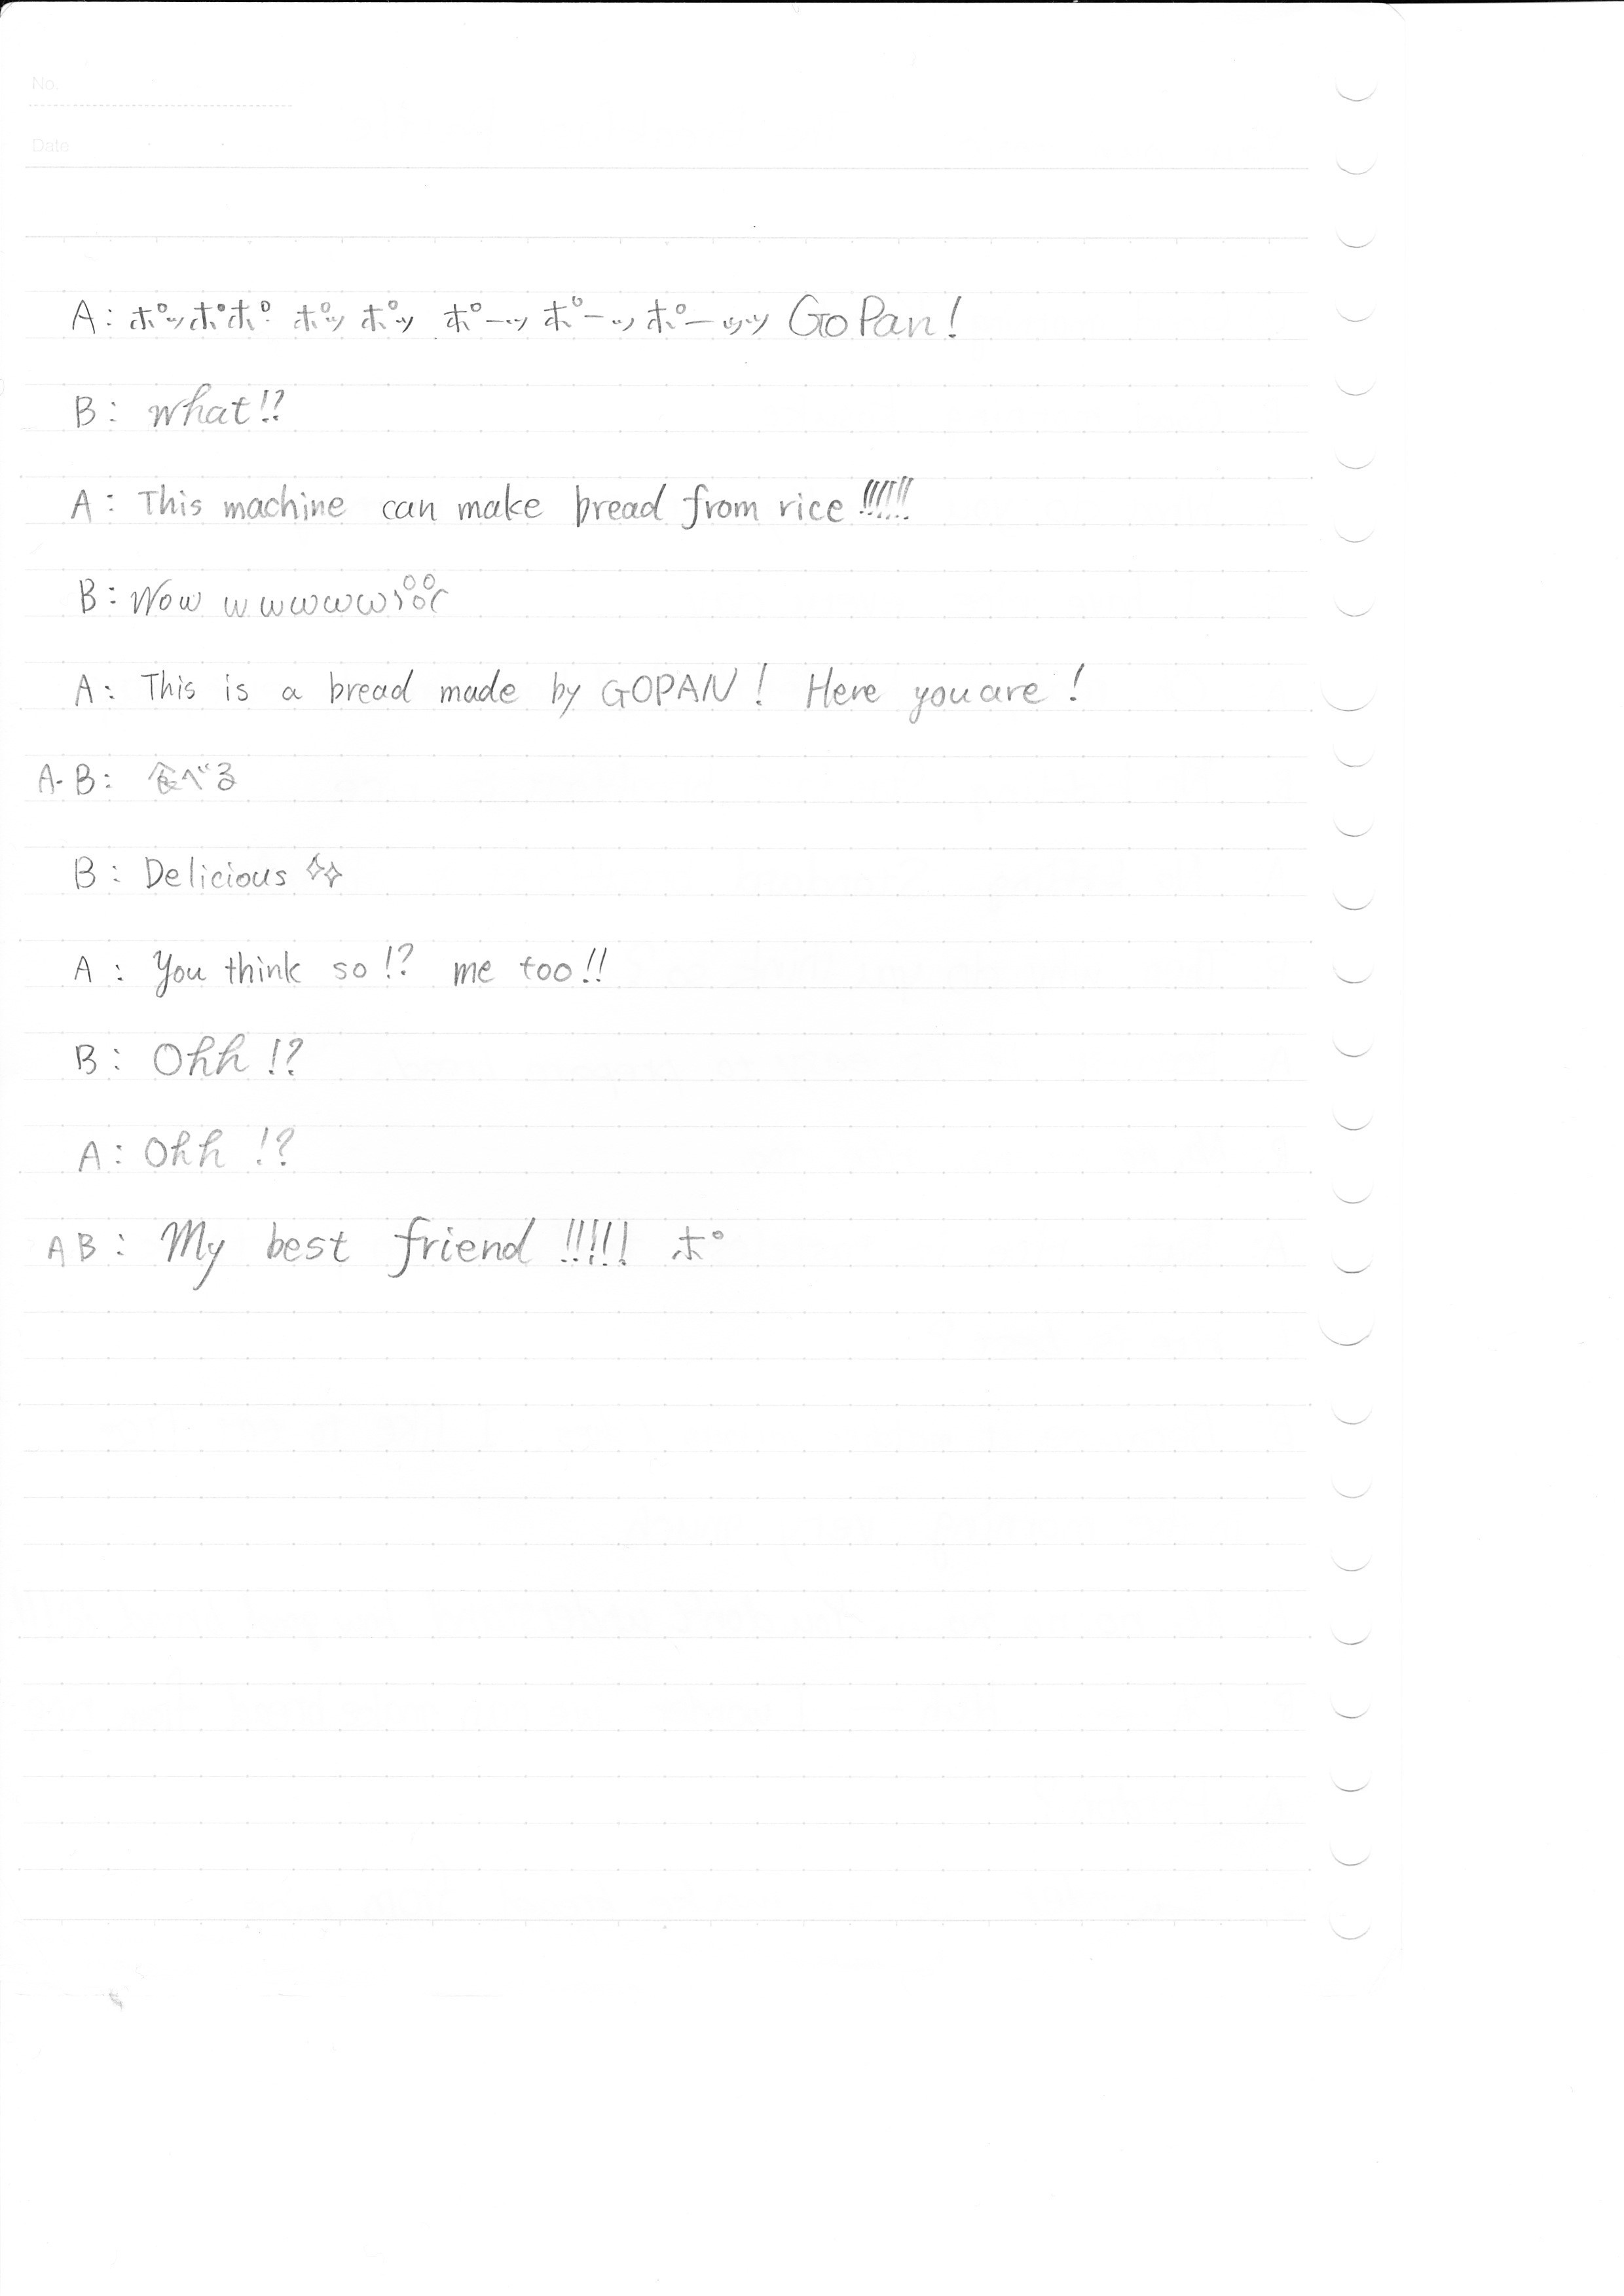 No.
Date
A: ポッポポ ポッ ポッ ポーッ ポーッ ポーッッ GoPan!
B: what!?
A: This machine can make bread from rice !!!!!!
B: Wow w w w w w
A: This is a bread made by GOPAN! Here you are!
A-B: 食べる
B: Delicious ✧✧
A: You think so!? me too!!
B: Ohh !?
A: Ohh !?
AB: My best friend !!!!! ポ